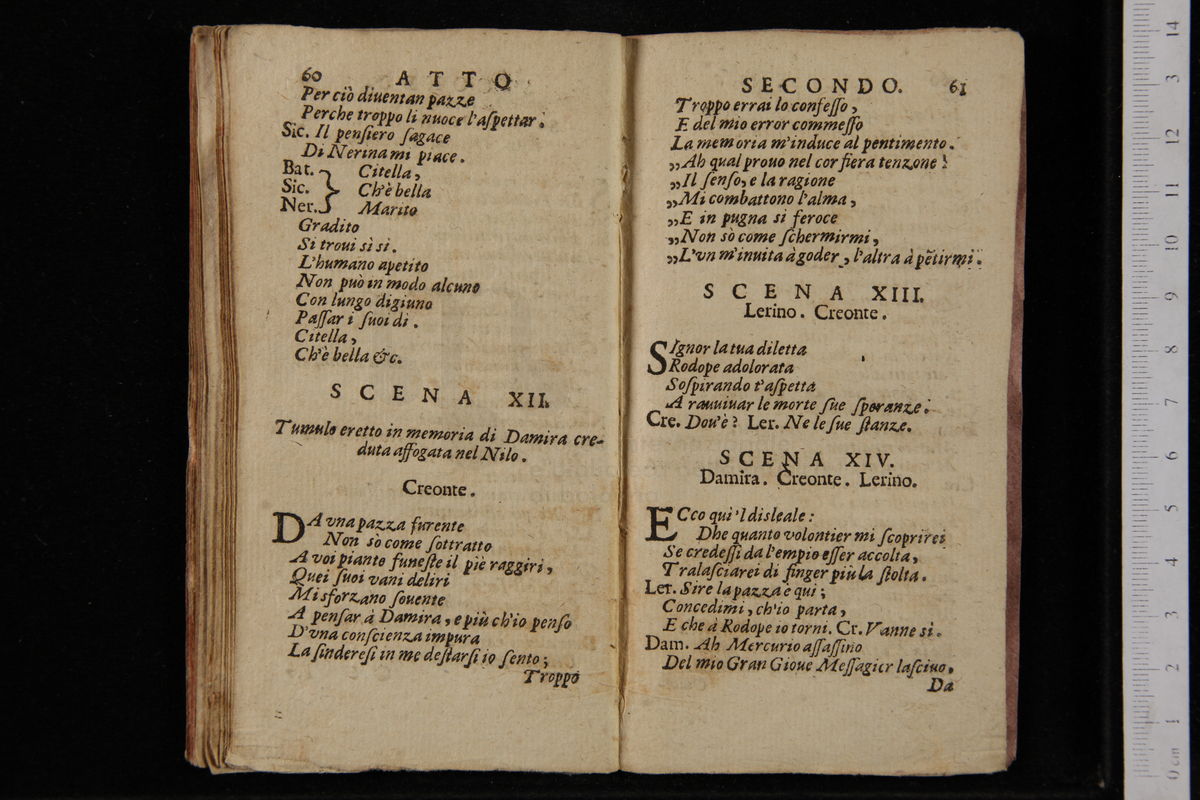 60 ATTO
Per ciò diuentan pazze
Perche troppo li nuoce l'aſpettar.
Sic. Il penſiero ſagace
Di Nerina mi piace.
Bat. Citella,
Sic. Ch'è bella
Ner. Marito
Gradito
Si troui sì sì.
L'humano apetito
Non può in modo alcuno
Con lungo digiuno
Paſſar i ſuoi dì.
Citella,
Ch'è bella &c.
SCENA XII.
Tumulo eretto in memoria di Damira cre-
duta affogata nel Nilo.
Creonte.
DA vna pazza furente
Non sò come ſottratto
A voi piante funeſte il piè raggiri,
Quei ſuoi vani deliri
Mi sforzano ſouente
A penſar à Damira, e più ch'io penſo
D'vna conſcienza impura
La ſindereſi in me deſtarſi io ſento;
Troppo
SECONDO. 61
Troppo errai lo confeſſo,
E del mio error commeſſo
La memoria m'induce al pentimento.
„Ah qual prouo nel cor fiera tenzone!
„Il ſenſo, e la ragione
„Mi combattono l'alma,
„E in pugna sì feroce
„Non sò come ſchermirmi,
„L'vn m'inuita à goder, l'altra à pẽtirmi.
SCENA XIII.
Lerino. Creonte.
SIgnor la tua diletta
Rodope adolorata
Soſpirando t'aſpetta
A rauuiuar le morte ſue ſperanze.
Cre. Dou'è? Ler. Ne le ſue ſtanze.
SCENA XIV.
Damira. Creonte. Lerino.
ECco qui 'l disleale:
Dhe quanto volontier mi ſcoprirei
Se credeſſi da l'empio eſſer accolta,
Tralaſciarei di finger più la ſtolta.
Ler. Sire la pazza è qui;
Concedimi, ch'io parta,
E che à Rodope io torni. Cr. Vanne sì.
Dam. Ah Mercurio aſſaſſino
Del mio Gran Gioue Meſſagier laſciuo.
Da
0 cm 1 2 3 4 5 6 7 8 9 10 11 12 3 14